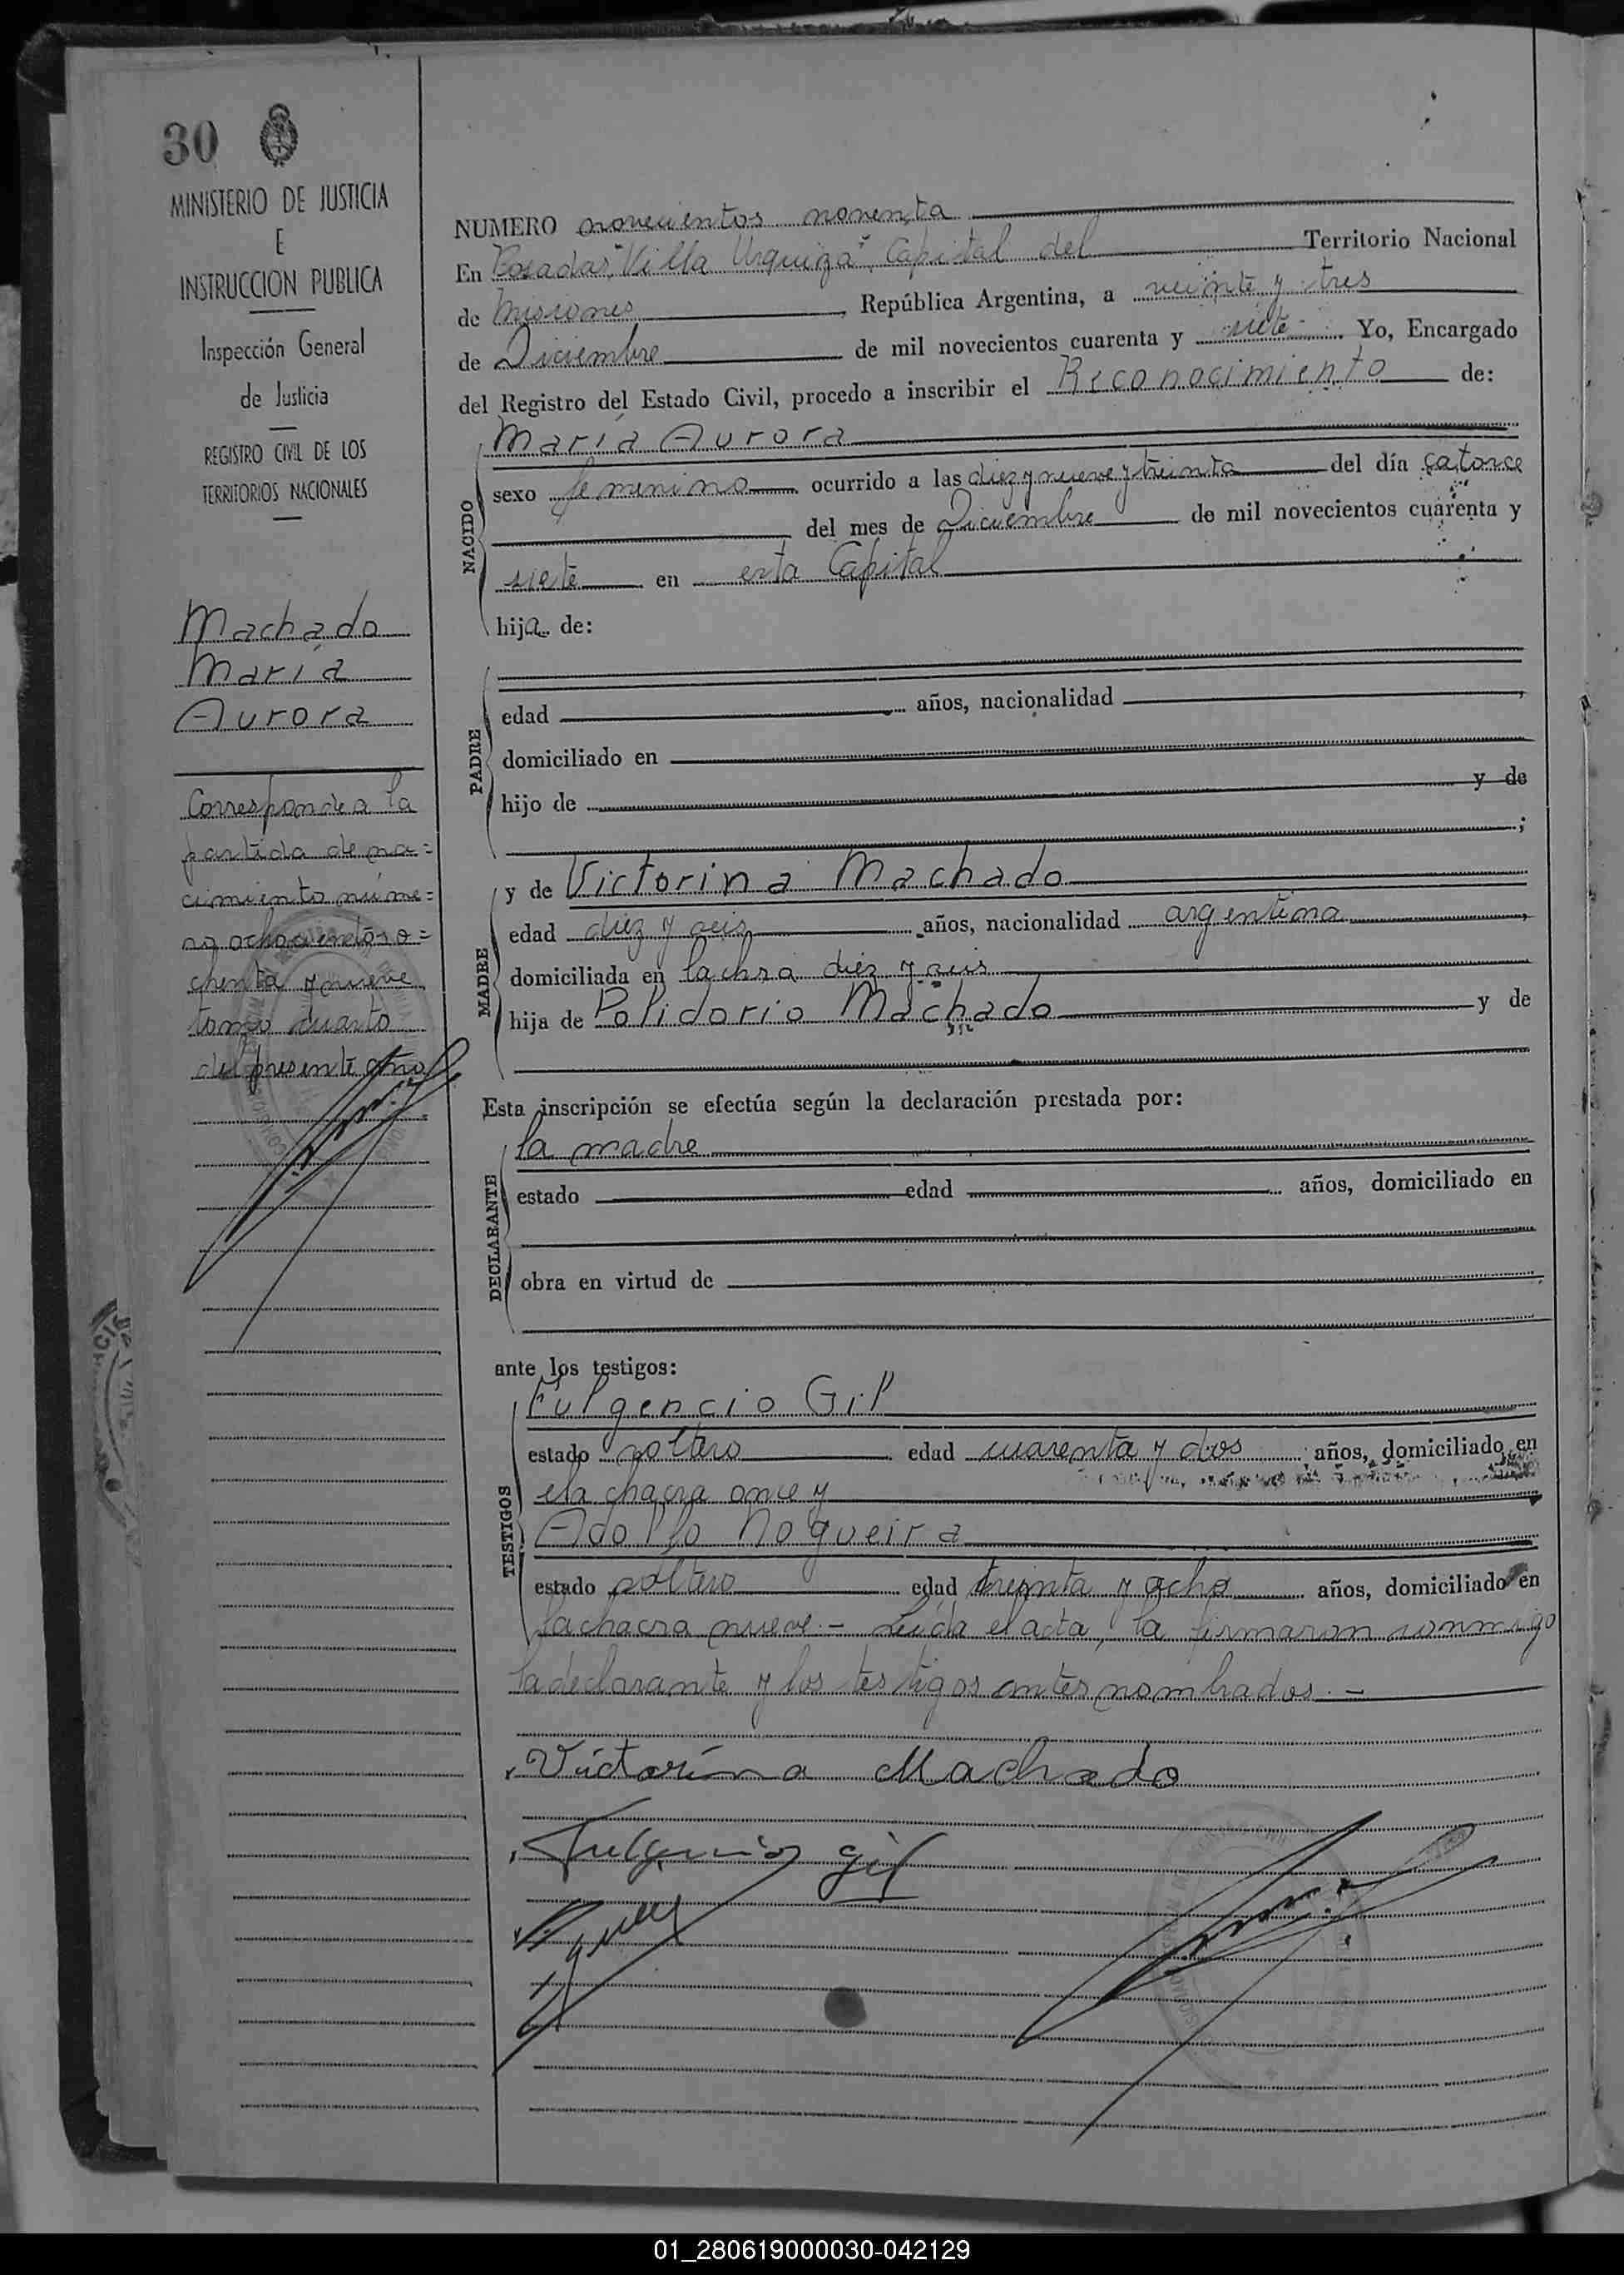 30
MINISTERIO DE JUSTICIA
E
INSTRUCCION PUBLICA
Inspección General
de Justicia
REGISTRO CIVIL DE LOS
TERRITORIOS NACIONALES
Machado
María
Aurora
Corresponde a la
partida de na=
cimiento núme=
ro ochocientos o=
chenta y nueve
tomo cuarto
del presente año
NUMERO novecientos noventa
En Posadas, "Villa Urquiza", Capital del Territorio Nacional
de Misiones, República Argentina, a veinte y tres
de Diciembre de mil novecientos cuarenta y siete. Yo, Encargado
del Registro del Estado Civil, procedo a inscribir el Reconocimiento de:
NACIDO
María Aurora
sexo femenino ocurrido a las diez y nueve y treinta del día catorce
del mes de Diciembre de mil novecientos cuarenta y
siete en esta Capital
hija de:
PADRE
edad años, nacionalidad ,
domiciliado en
hijo de y de
;
MADRE
y de Victorina Machado
edad diez y seis años, nacionalidad argentina,
domiciliada en la chra diez y seis
hija de Polidorio Machado y de
Esta inscripción se efectúa según la declaración prestada por:
DECLARANTE
la madre
estado edad años, domiciliado en
obra en virtud de
ante los testigos:
TESTIGOS
Fulgencio Gil
estado soltero edad cuarenta y dos años, domiciliado en
la chacra once y
Adolfo Nogueira
estado soltero edad treinta y ocho años, domiciliado en
la chacra nueve.- Leída el acta, la firmaron conmigo
la declarante y los testigos antes nombrados.-
Victorina Machado
Fulgencio Gil
01_280619000030-042129